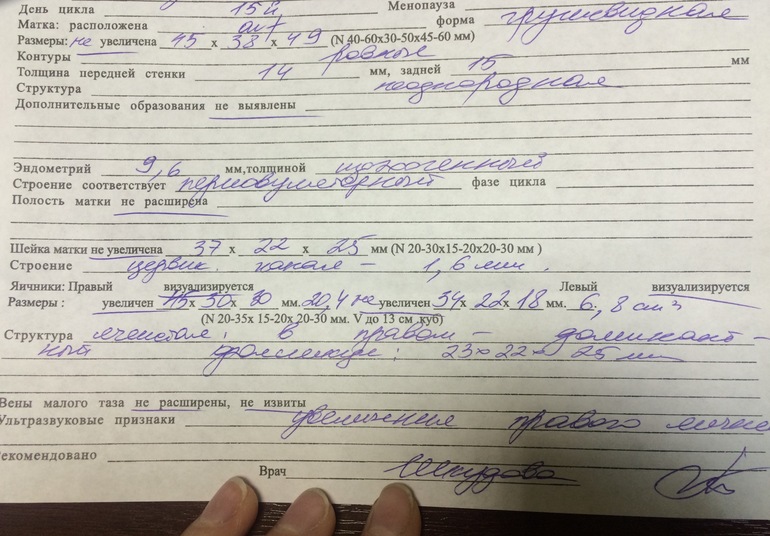 День цикла 15й Менопауза
Матка: расположена ant форма грушевидная
Размеры: не увеличена 45 х 38 х 49 (N 40-60х30-50х45-60 мм)
Контуры ровные
Толщина передней стенки 14 мм, задней 15 мм
Структура неоднородная
Дополнительные образования не выявлены
Эндометрий 9,6 мм,толщиной изоэхогенный
Строение соответствует периовуляторный фазе цикла
Полость матки не расширена
Шейка матки не увеличена 37 х 22 х 25 мм (N 20-30х15-20х20-30 мм )
Строение цервик. канал – 1,6 мм.
Яичники: Правый визуализируется Левый визуализируется
Размеры : увеличен 45 х 30 х 30 мм. 20,4 не увеличен 34 х 22 х 18 мм. 6,8 cm³
(N 20-35х 15-20х 20-30 мм. V до 13 см .куб)
Структура ячеистая; в правом – доминант-
ный фолликул: 23 х 22 х 25 мм
Вены малого таза не расширены, не извиты
Ультразвуковые признаки увеличения правого яични
екомендовано
Врач